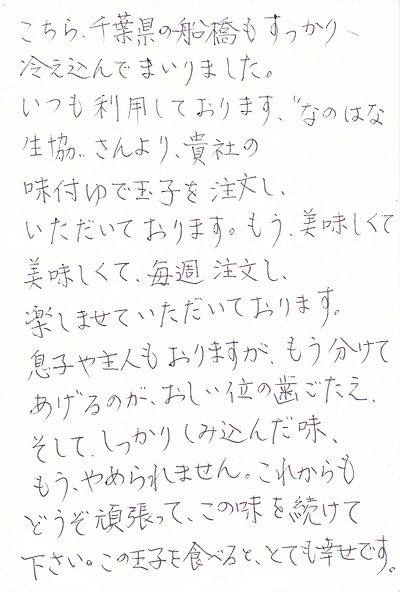 こちら、千葉県の船橋もすっかり
冷え込んでまいりました。
いつも利用しております、"なのはな
生協"さんより、貴社の
味付ゆで玉子を注文し、
いただいております。もう、美味しくて
美味しくて、毎週注文し、
楽しませていただいております。
息子や主人もおりますが、もう分けて
あげるのが、おしい位の歯ごたえ、
そして、しっかりしみ込んだ味、
もう、やめられません。これからも
どうぞ頑張って、この味を続けて
下さい。この玉子を食べると、とても幸せです。